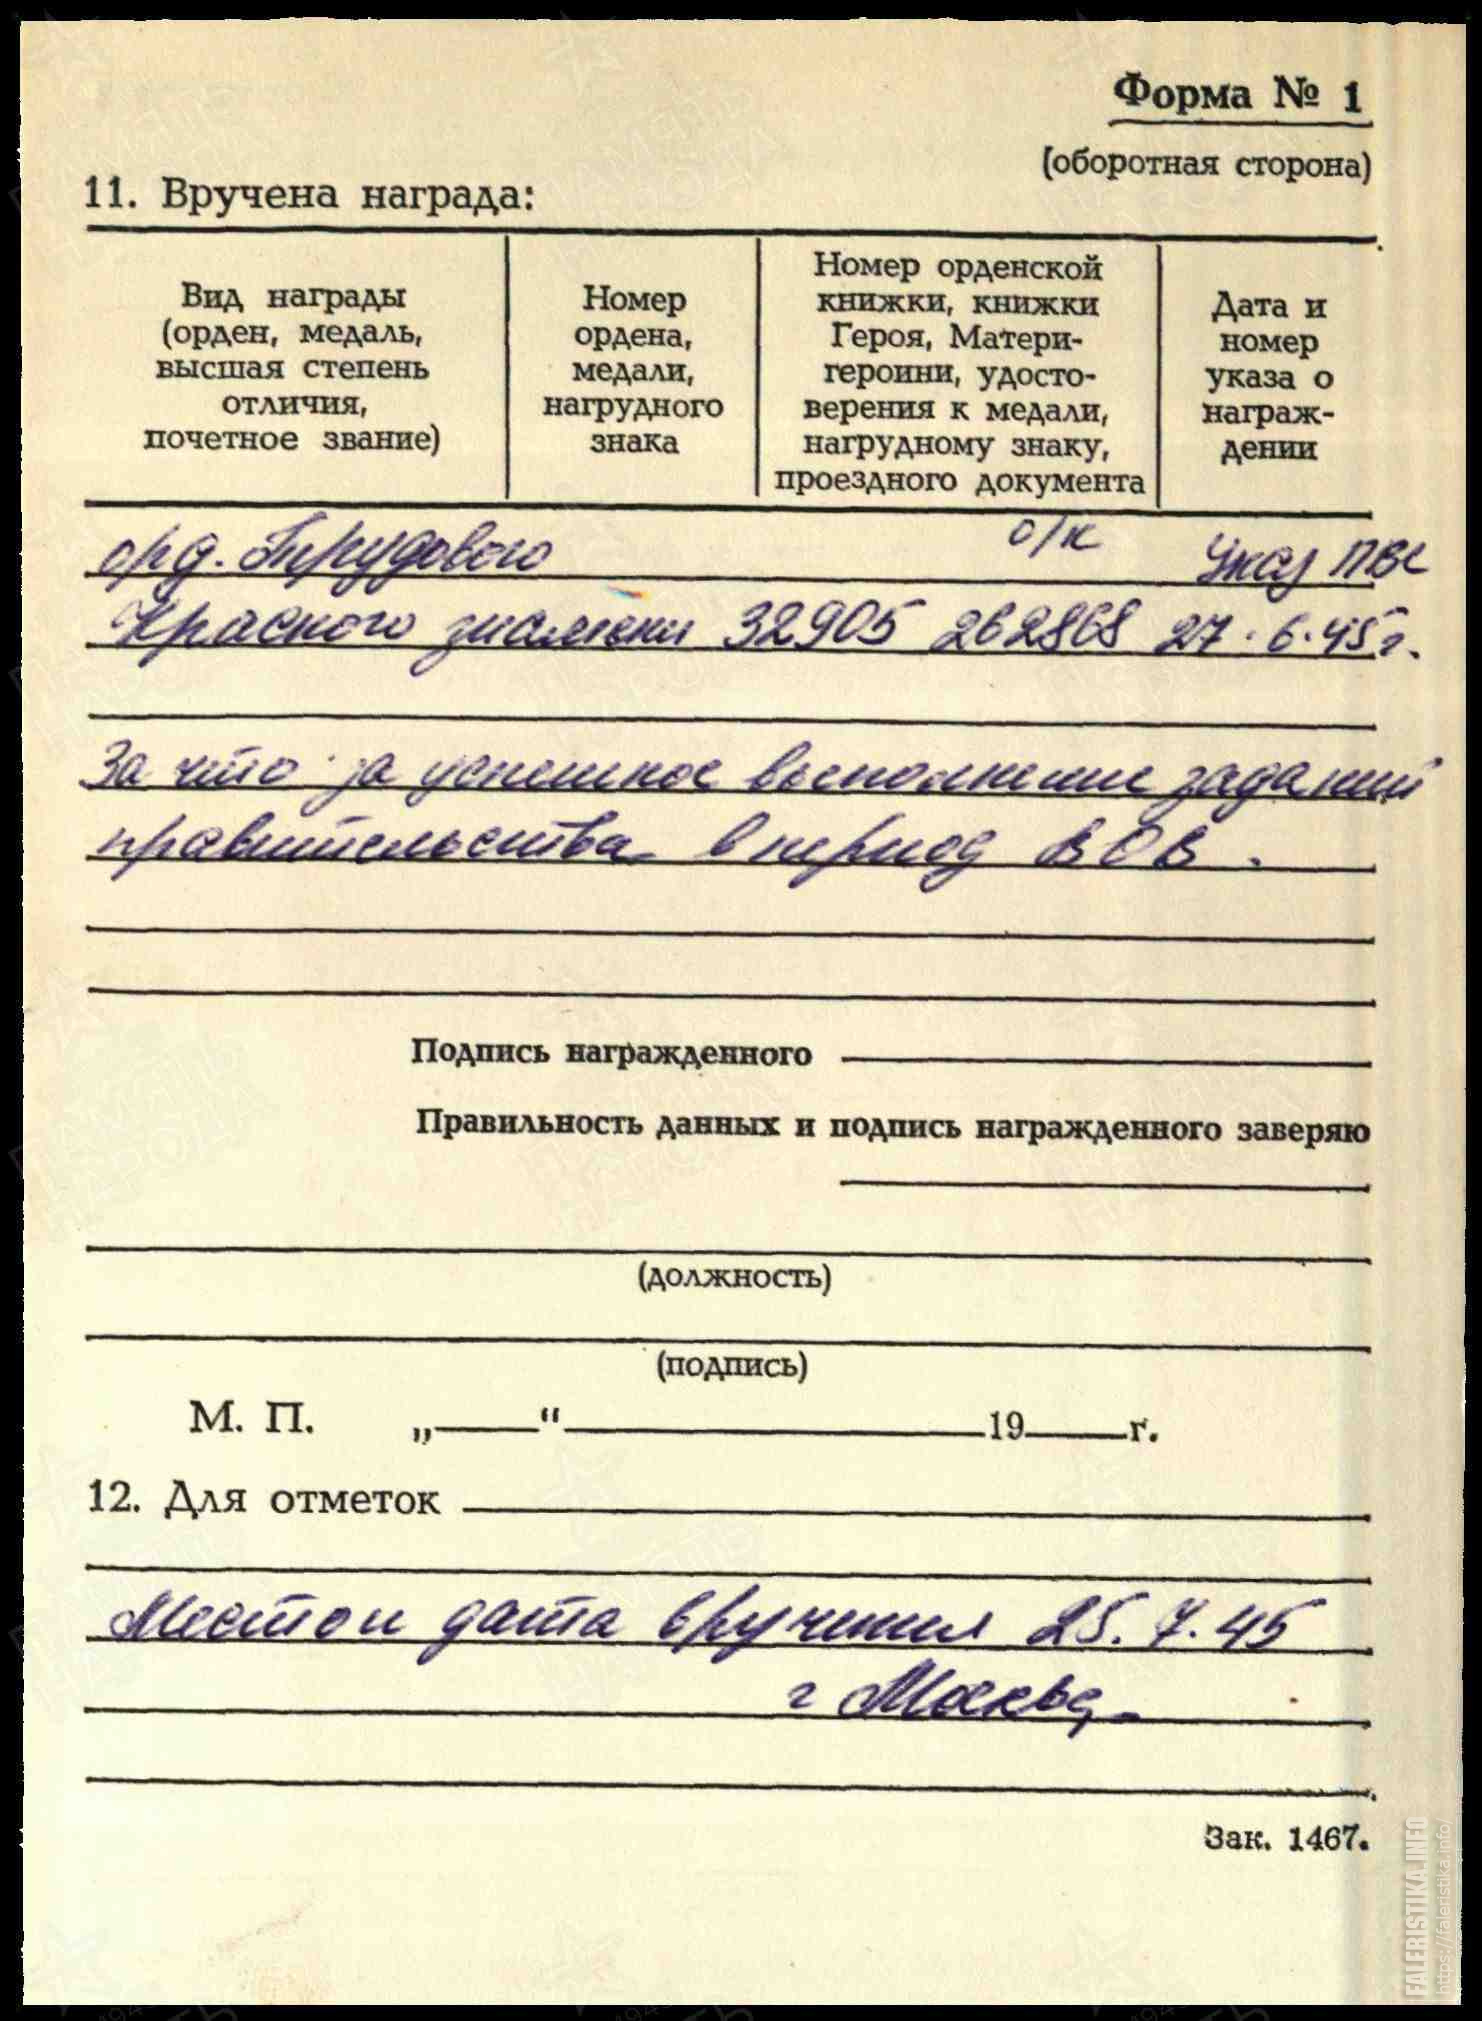 Форма № 1
(оборотная сторона)
11. Вручена награда:
Вид награды
(орден, медаль,
высшая степень
отличия,
почетное звание)
Номер
ордена,
медали,
нагрудного
знака
Номер орденской
книжки, книжки
Героя, Матери-
героини, удосто-
верения к медали,
нагрудному знаку,
проездного документа
Дата и
номер
указа о
награж-
дении
орд. Трудового о/к Указ ПВС
Красного знамени 32905 262868 27.6.45г.
За что за успешное выполнение заданий
правительства в период ВОВ.
Подпись награжденного
Правильность данных и подпись награжденного заверяю
(должность)
(подпись)
М. П. „ “ 19 г.
12. Для отметок
Место и дата вручения 25.7.45
г Москва
Зак. 1467.
FALERISTIKA.INFO
https://faleristika.info/
ПАМЯТЬ
НАРОДА